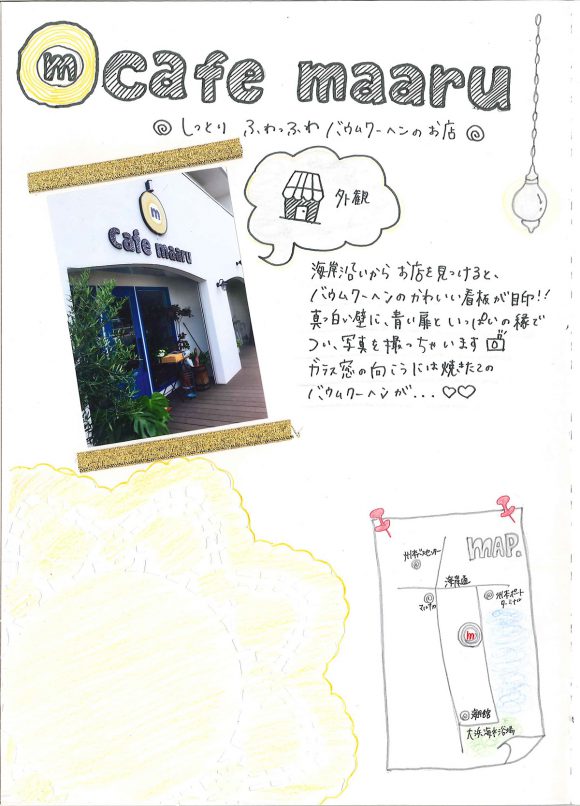 m cafe maaru
しっとり ふわっふわ バウムクーヘンのお店
m
Cafe maaru
外観
海岸沿いから お店を見つけると、
バウムクーヘンのかわいい看板が目印!!
真っ白い壁に、青い扉といっぱいの緑で
つい、写真を撮っちゃいます
ガラス窓の向こうには焼きたての
バウムクーヘンが... ♡♡
MAP.
州本バスセンター
海岸通
マルナカ
洲本ポート
ターミナル
m
大浜海水浴場